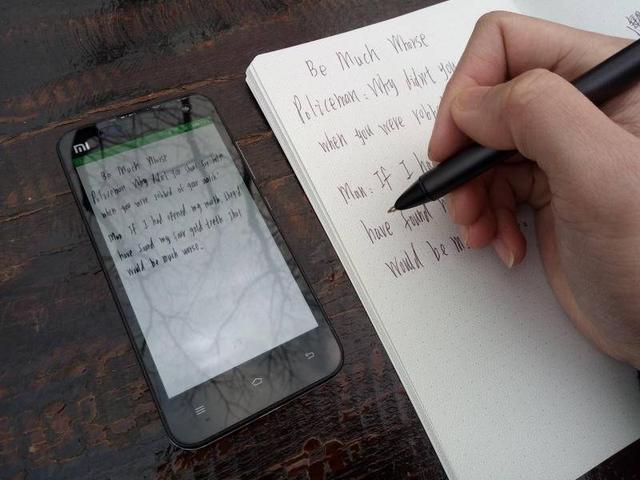 mi
Be Much Worse
Policeman: Why didn't you shout for help
when you were robbed of you watch?
Man: If I had opened my mouth, they'd
have found my four gold teeth. That
would be much worse.
Be Much Worse
Policeman: Why didn't you
when you were robb
Man: If I ha
have found
would be m